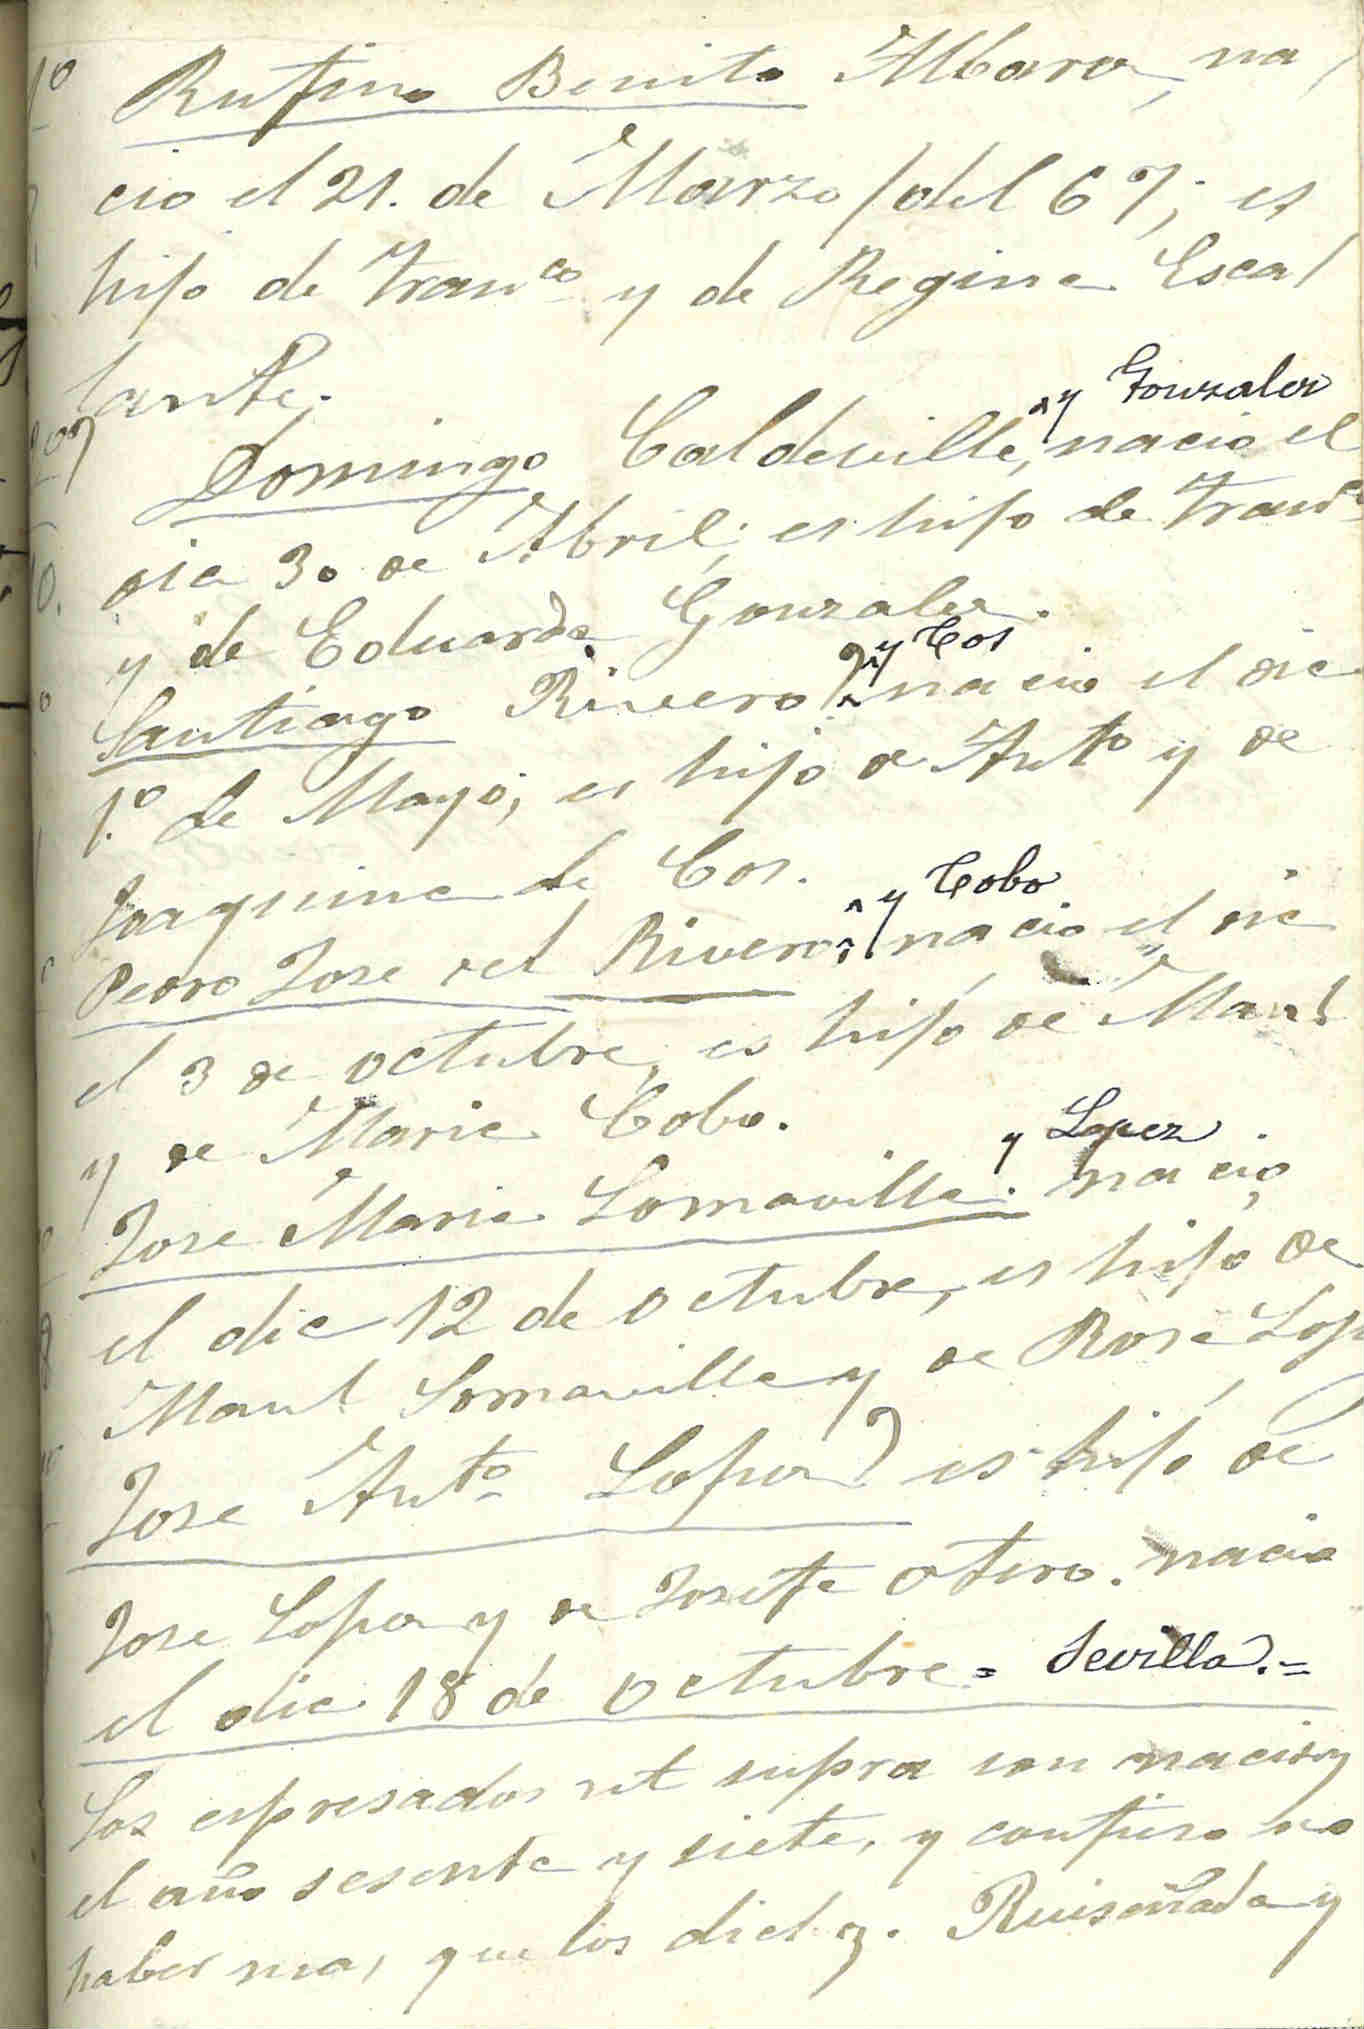 1º Rufino Benito Albara, na
cio el 21. de Marzo / del 67; es
hijo de Franco y de Regina Esca/
lante.
y Gonzalez
Domingo Caldevilla, nacio el
dia 30 de Abril; es hijo de Franco
y de Eduarda Gonzalez.
y Cos
Santiago Rivero nacio el dia
1.º de Mayo; es hijo de Anto y de
Joaquina de Cos.
y Cobo
Pedro Jose del Rivero nacio el dia
el 3 de octubre, es hijo de Manl
y de Maria Cobo.
y Lopez
Jose Maria Somavilla. nacio
el dia 12 de octubre, es hijo de
Manl Somavilla y de Rosa Lop
Jose Anto Lopez es hijo de
Jose Lopez y de Josefa otero. nacio
el dia 18 de octubre = Sevilla. =
Los espresados ut supra son nacidos
el año sesenta y siete, y confieso no
haber mas, que los dichos. Ruiseñada y